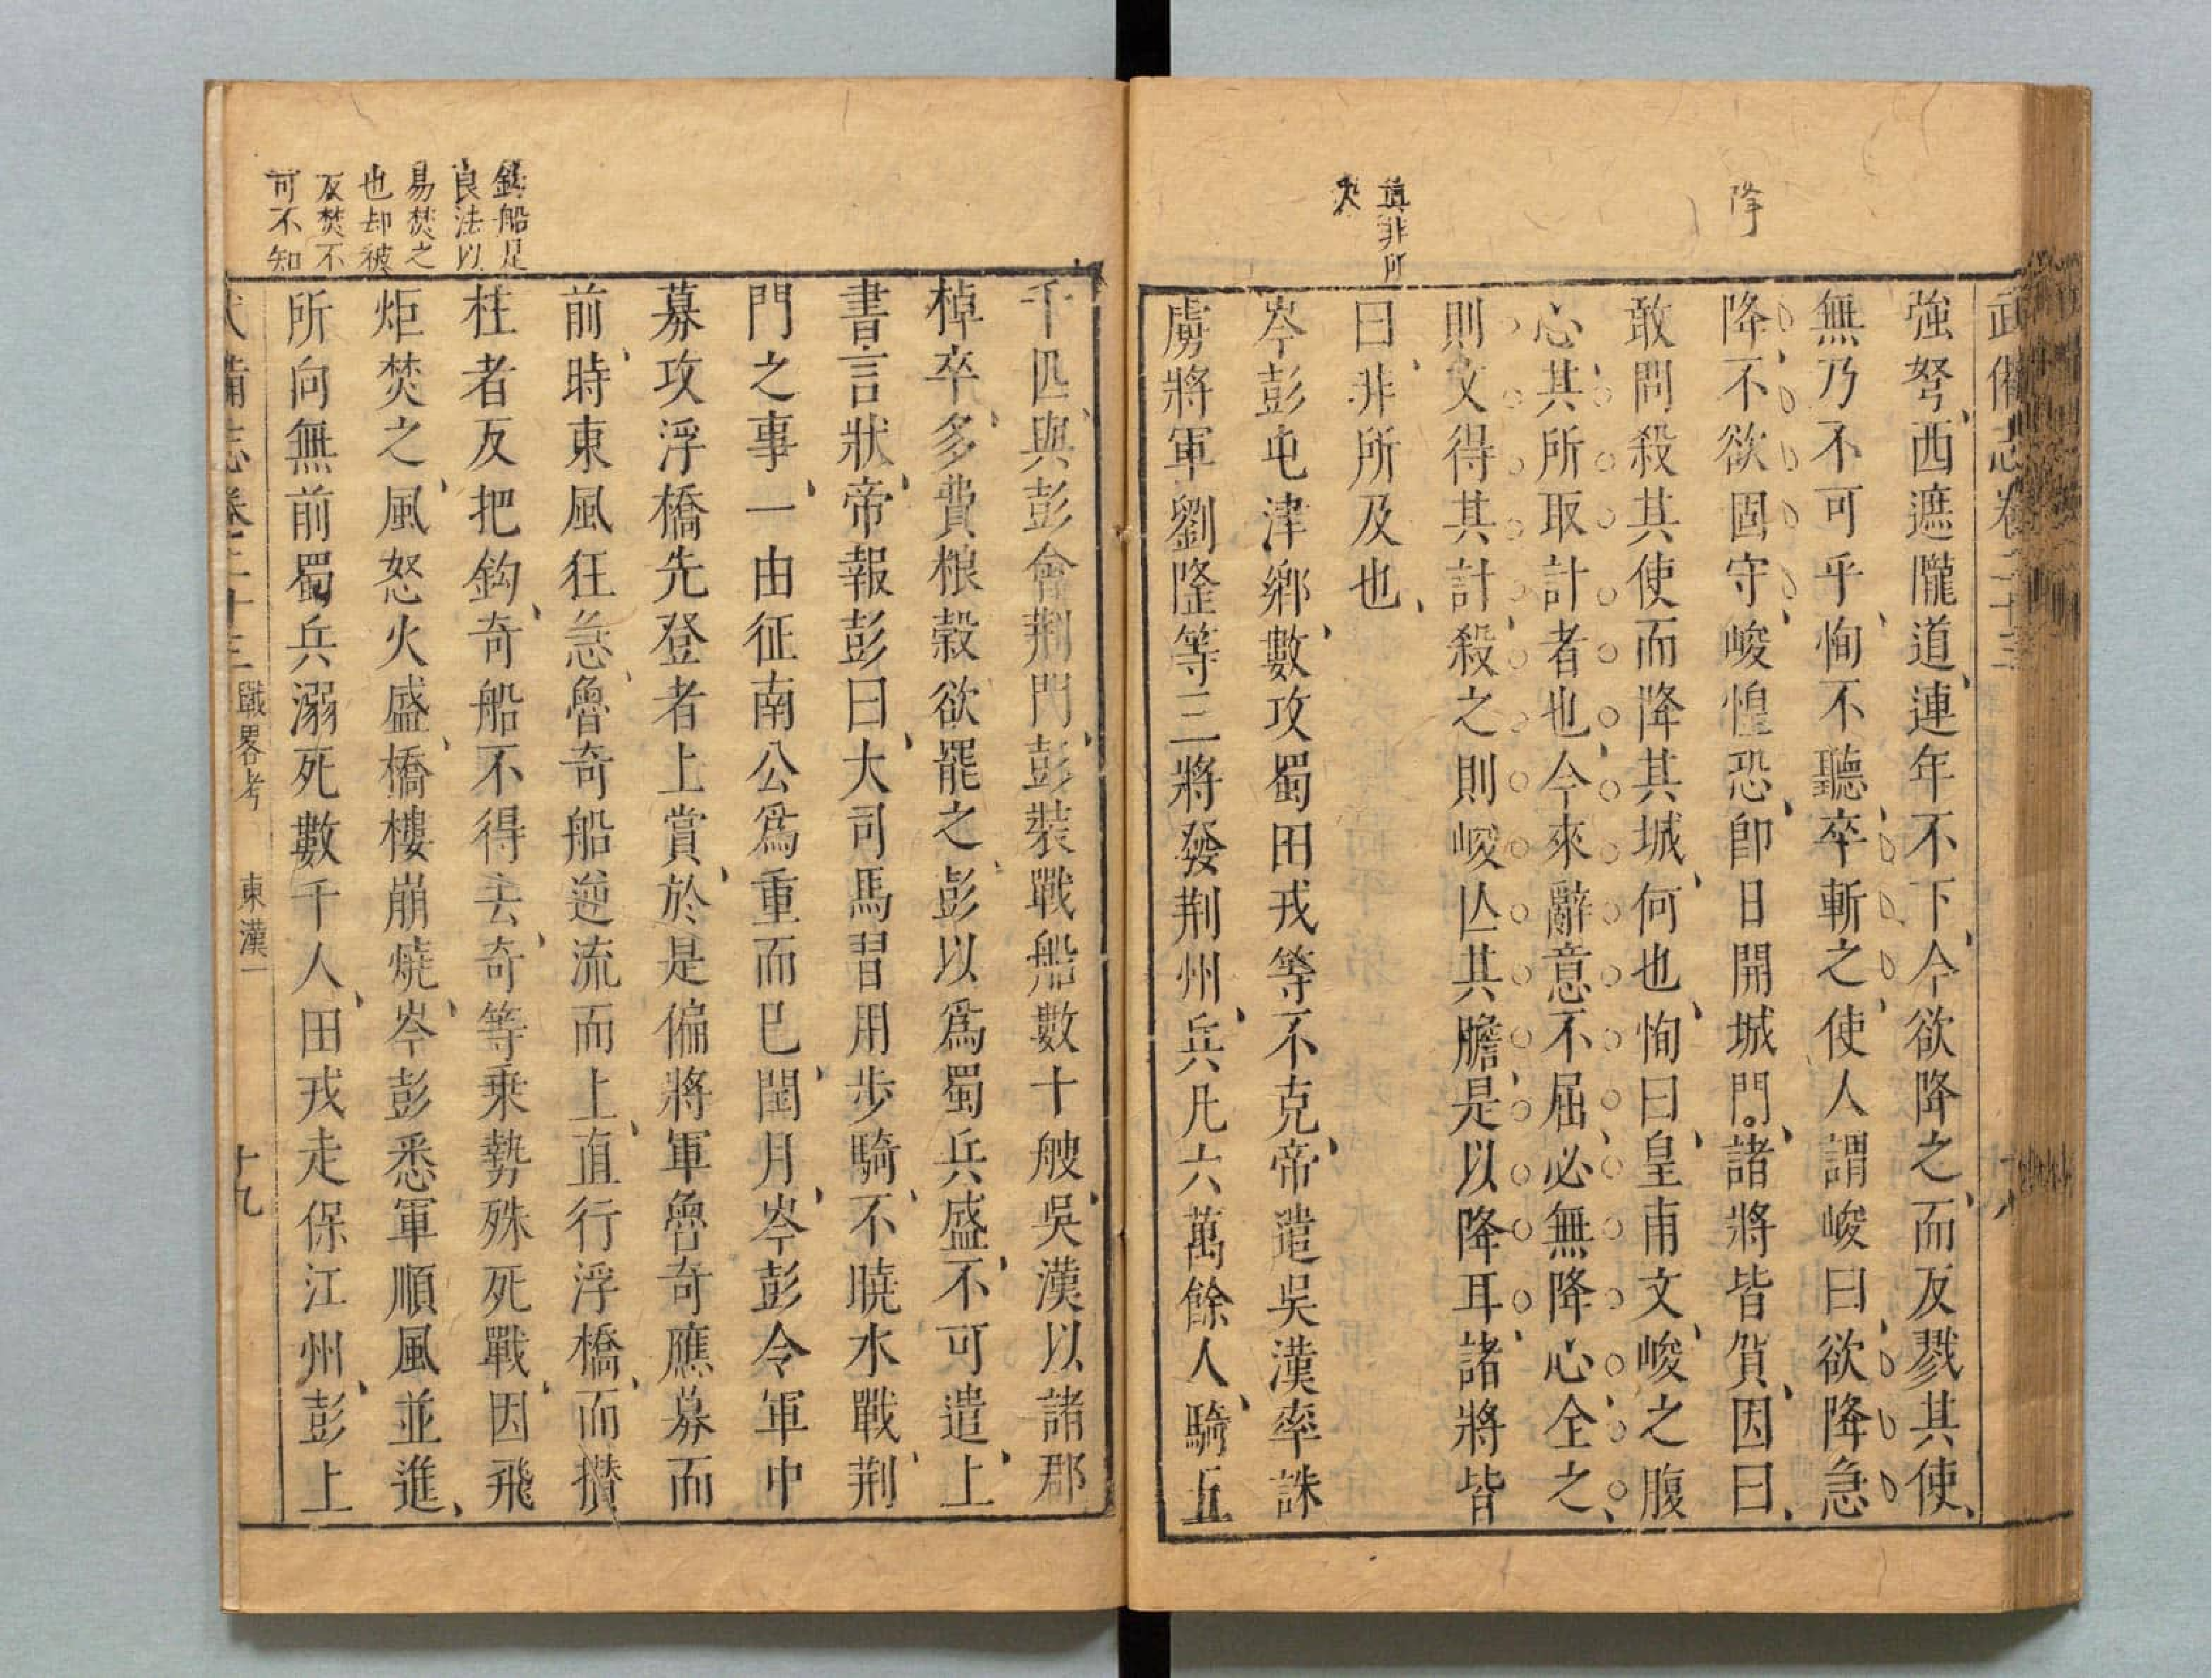 降
真非所
及
武備志卷二十三
強弩西遮隴道連年不下今欲降之而反戮其使
無乃不可乎恂不聽卒斬之使人謂峻曰欲降急
降不欲固守峻惶恐即日開城門諸將皆賀因曰
敢問殺其使而降其城何也恂曰皇甫文峻之腹
心其所取計者也今來辭意不屈必無降心全之
則文得其計殺之則峻亾其膽是以降耳諸將皆
曰非所及也
岑彭屯津鄉數攻蜀田戎等不克帝遣吳漢率誅
虜將軍劉隆等三將發荆州兵凡六萬餘人騎五
鈎船是
良法以
易焚之
也却被
反焚不
可不知
千匹與彭會荆門彭裝戰船數十艘吳漢以諸郡
棹卒多費粮穀欲罷之彭以爲蜀兵盛不可遣上
書言狀帝報彭曰大司馬習用步騎不曉水戰荆
門之事一由征南公爲重而已閏月岑彭令軍中
募攻浮橋先登者上賞於是偏將軍魯奇應募而
前時東風狂急魯奇船逆流而上直行浮橋而攢
柱者反把鈎奇船不得去奇等乗勢殊死戰因飛
炬焚之風怒火盛橋樓崩燒岑彭悉軍順風並進
所向無前蜀兵溺死數千人田戎走保江州彭上
武備志卷二十三 戰畧考 東漢一 十九